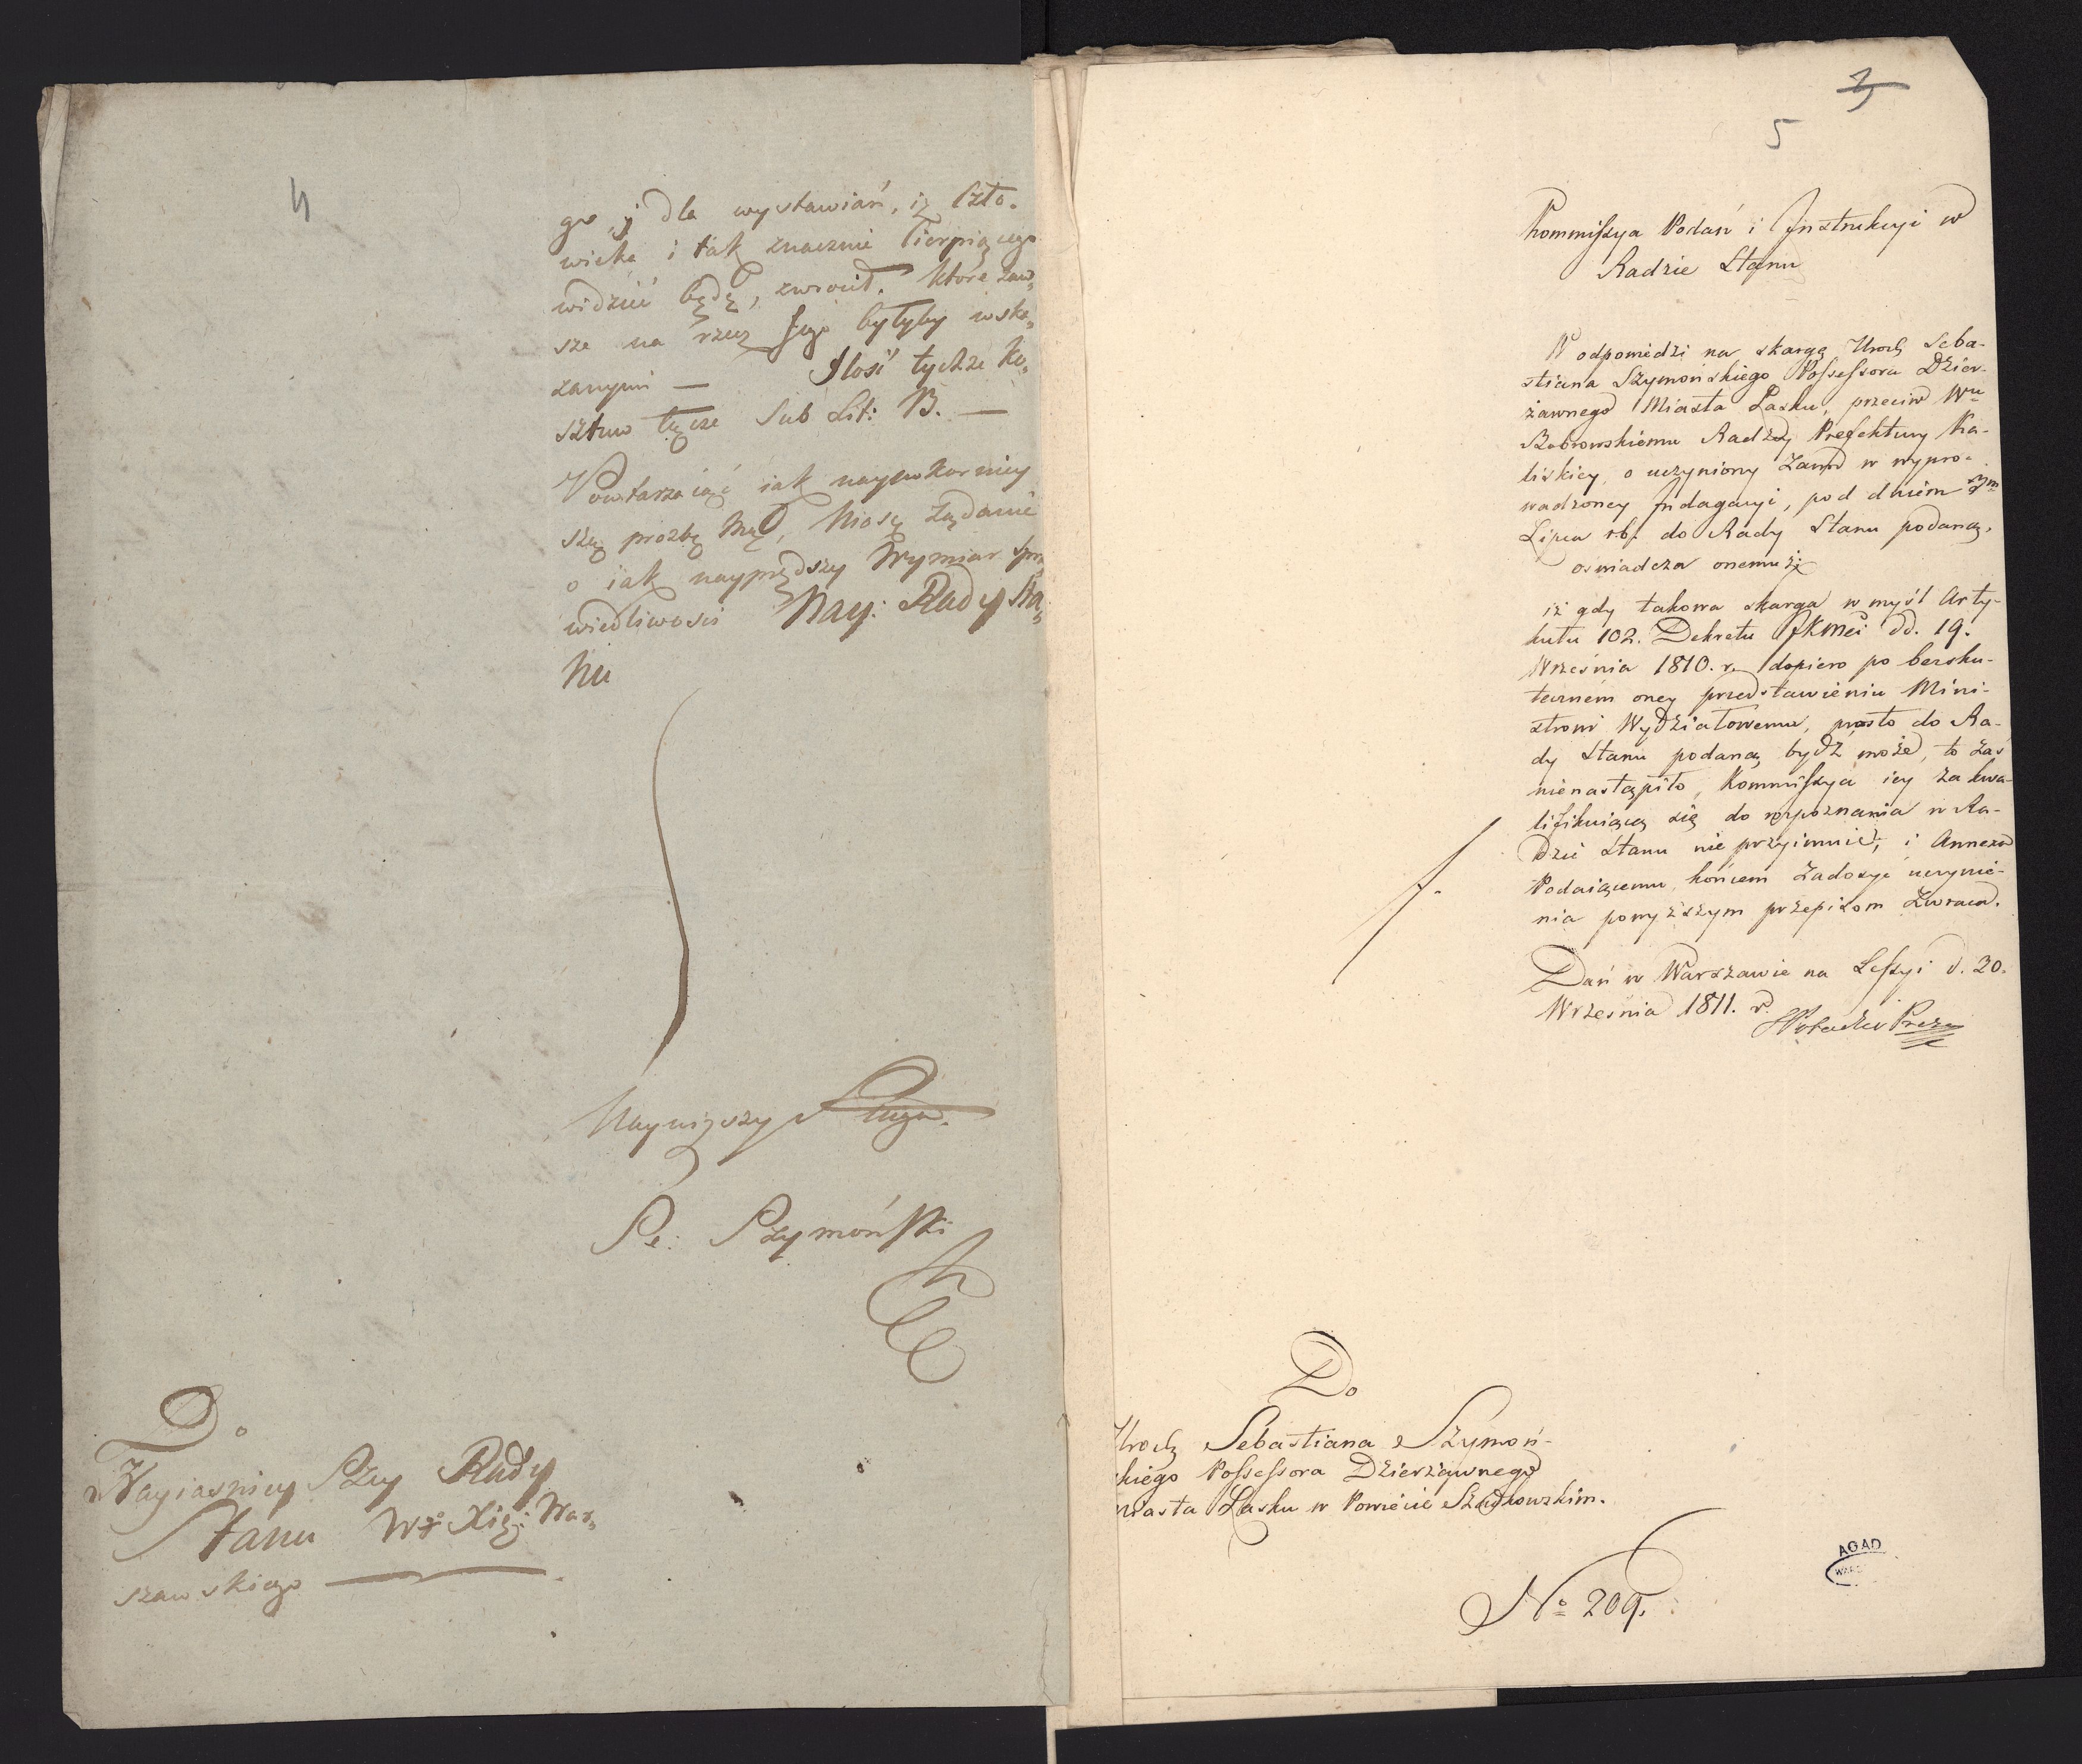 4
go, j dla wystawiań, iż Czło.
wieka i tak znacznie Cierpiącego
widzieć będę, zwrócił. Które zaw„
sze na rzecz Jego byłyby wska„
zanymi — Ilość tychże Ko„
sztuw łączę Sub Lit: B. —
Powtarzaiąc iak naypokorniey
szą prozbę Mą, Niosę Żądanie
o iak nayprędszy Wymiar spra„
wiedliwości Nay: Rady Sta„
nu
Nayniższy Sługa.
Se: Szymoński
Do
Nayiaśniey Szey Rady
Stanu Xię: War„
szawskiego —
5
Kommissya Podań i Instrukcyi w
Radzie Stanu
W odpowiedzi na skargę Urodz Seba-
stiana Szymońskiego Possessora Dzier-
żawnego Miasta Łasku, przeciw Wu
Bobrowskiemu Radzcy Prefektury Ka-
liskiey, o uczyniony Zawód w wypro-
wadzoney Indagacyi, pod dniem
Lipca rb. do Rady Stanu podaną,
oświadcza onemuż
iż gdy takowa skarga w myśl Arty-
kułu 102. Dekretu JKMci dd. 19.
Września 1810. r. dopiero po bezsku-
tecznem oney przedstawieniu Mini-
strowi Wydziałowemu, prosto do Ra-
dy Stanu podaną bydź może, to zaś
nienastąpiło, Kommissya iey za kwa-
lifikuiącą się do rozpoznania w Ra-
dzie Stanu nie przyimuie, i Annexa
Podaiącemu, końcem zadosyć uczynie-
nia powyższym przepisom zwraca.
Dań w Warszawie na Sessyi d. 20.
Września 1811. r.
Potocki Prez
Do
Urodz Sebastiana Szymoń-
skiego Possessora Dzierżawnego
Miasta Łasku w Powiecie Szadkowskim.
No 209.
AGAD